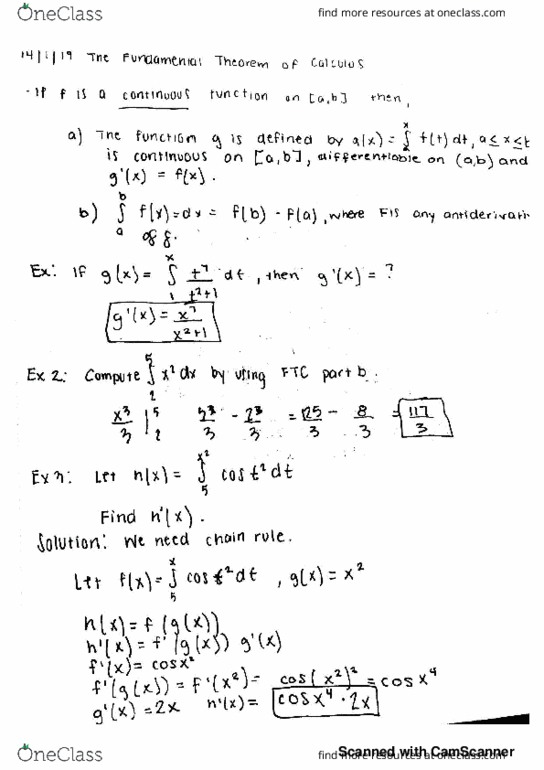 OneClass
find more resources at oneclass.com
14/1/19 The Fundamental Theorem of Calculus
- If f is a continuous function on [a,b] then,
a) The function g is defined by g(x) = ∫ₐˣ f(t) dt, a ≤ x ≤ b
is continuous on [a,b], differentiable on (a,b) and
g'(x) = f(x).
b) ∫ₐᵇ f(x) = dx = F(b) - F(a), where F is any antiderivati
of f.
Ex: If g(x) = ∫₁ˣ t⁷/(t²+1) dt, then g'(x) = ?
g'(x) = x⁷/(x²+1)
Ex 2: Compute ∫₂⁵ x² dx by using FTC part b.
x³/3 |₂⁵ 5³/3 - 2³/3 = 125/3 - 8/3 = 117/3
Ex 3: Let h(x) = ∫₅^(x²) cos t² dt
Find h'(x).
Solution: We need chain rule.
Let f(x) = ∫₅ˣ cos t² dt, g(x) = x²
h(x) = f(g(x))
h'(x) = f'(g(x)) g'(x)
f'(x) = cos x²
f'(g(x)) = f'(x²) = cos(x²)² = cos x⁴
g'(x) = 2x h'(x) = cos x⁴ · 2x
OneClass
find more resources at oneclass.com
Scanned with CamScanner